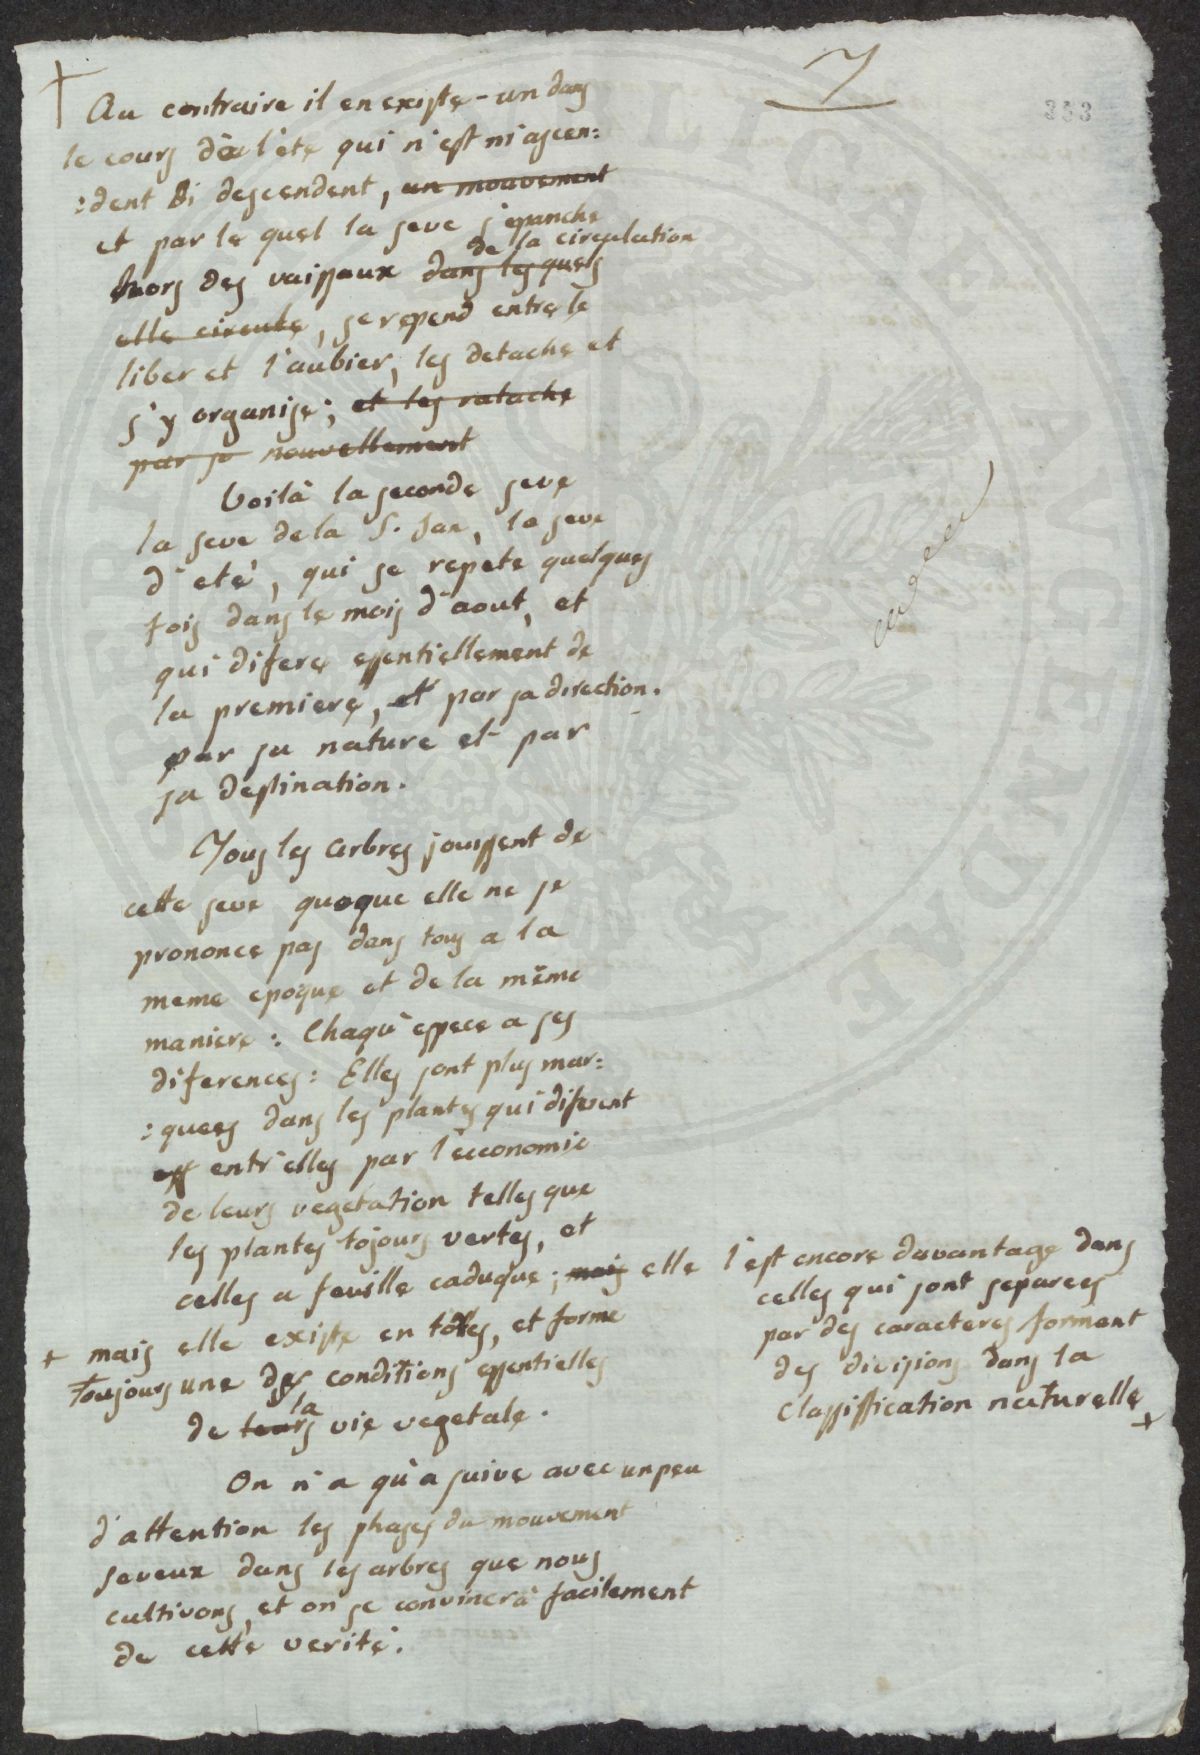 7
353
+ Au contraire il en existe un dans
le cours de l'eté qui n'est ni ascen:
:dent ni descendent, un mouvement
et par le quel la seve s'epanche
de la circulation
hors des vaisseaux dans les quels
elle circule, se repend entre le
liber et l'aubier, les detache et
s'y organise; et les ratache
par sa nouvellement
Voilà la seconde seve
la seve de la S. Jan, la seve
d'eté, qui se repete quelques
fois dans le mois d'aout, et
qui difere essentiellement de
la premiere, et par sa direction.
par sa nature et par
sa destination.
Tous les arbres jouissent de
cette seve quoque elle ne se
prononce pas dans tous a la
meme epoque et de la même
maniere: Chaqu'espece a ses
diferences: Elles sont plus mar:
:quees dans les plantes qui diferent
ess entr'elles par l'economie
de leurs vegetation telles que
les plantes tojours vertes, et
celles a feuille caduque; mais elle l'est encore davantage dans
celles qui sont separees
par des caracteres formant
des divisions dans la
classiffication naturelle +
+ mais elle existe en toutes, et forme
Toujours une des conditions essentielles
la
de leurs vie vegetale.
On n'a qu'a suive avec un peu
d'attention les phases du mouvement
seveux dans les arbres que nous
cultivons, et on se convincra facilement
de cette verité.